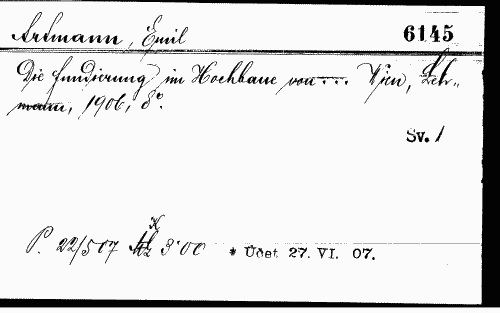 Artmann, Emil 6145
Die Fundierung im Hochbaue von... Wien, Leh-
mann, 1906, 8°.
Sv. 1
P. 22/5 07 K 3·00 * Účet 27. VI. 07.